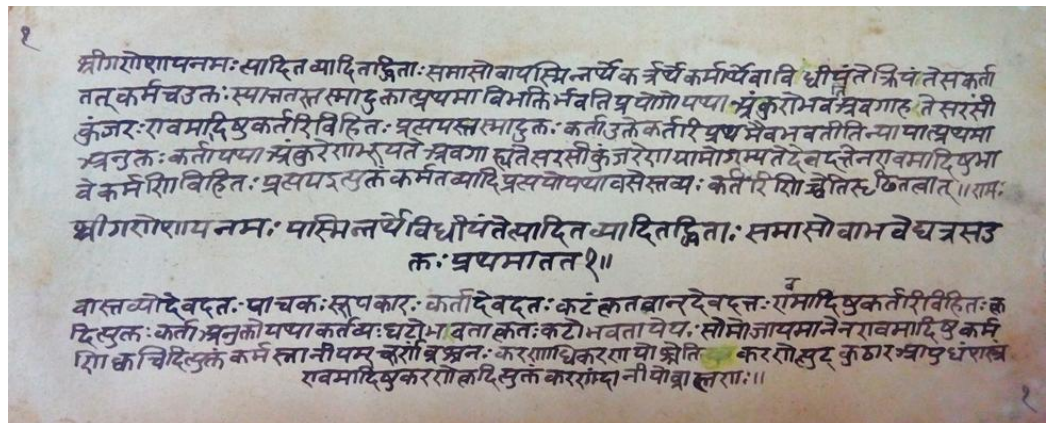 १
श्रीगणेशायनमः त्यादितव्यादितद्धिताः समासोवायस्मिन्नर्थे कर्त्रर्थे कर्मार्थेवा विधीयंते क्रियंते सकर्ता
तत् कर्मचउक्तः स्यात्ततस्तस्मादुक्तात्प्रथमा विभक्तिर्भवति प्रयोगोयथा अंकुरोभवति अवगाहते सरसीं
कुंजरः एवमादिषुकर्तरिविहितः प्रत्ययस्तस्मादुक्तः कर्ताउक्तेकर्तरिप्रथमैवभवतीतिन्यायात्प्रथमा
अनुक्तः कर्तायथा अंकुरेणभूयते अवगाह्यतेसरसीकुंजरेण ग्रामोगम्यतेदेवदत्तेन एवमादिषुभा
वेकर्मणिविहितः प्रत्ययइत्युक्तं कर्मतव्यादिप्रत्ययोयथावसेस्तव्यः कर्तरिणिच्चेति पठितत्वात् ॥ रामः
श्रीगणेशायनमः यस्मिन्नर्थेविधीयंतेत्यादितव्यादितद्धिताः समासोवाभवेद्यत्रसउ
क्तः प्रथमातत १॥
वास्तव्योदेवदतः पाचकः सूपकारः कर्तादेवदतः कटंकृतवान्देवदत्तः एवमादिषुकर्तरिविहितः कृ
दित्युक्तः कर्ताअनुक्तोयथाकर्तव्यः घटोभवताकृतः कटोभवतापेयः सोमोजायमानेन एवमादिषुकर्म
णि क्वचिदित्युक्तं कर्म स्नानीयम् चूर्णं व्रश्चनः करणाधिकरणयोश्चेति करणेल्युट् कुठार आयुधंशस्त्रं
एवमादिषुकरणेकृदित्युक्तं करणंदानीयोब्राह्मणः॥
१